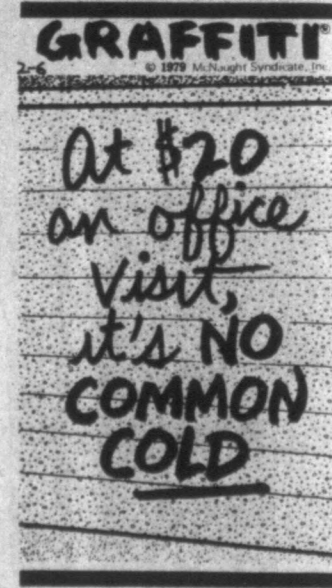 GRAFFITI®
2-6 © 1979 McNaught Syndicate, Inc.
At $20
an office
visit,
it's NO
COMMON
COLD